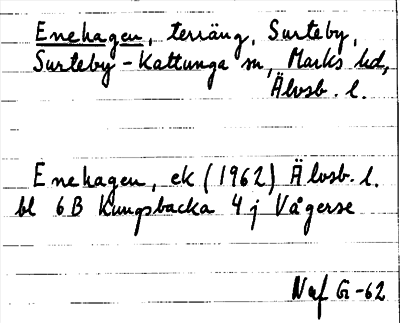 Enehagen, terräng, Surteby,
Surteby-Kattunga sn, Marks hd,
Älvsb. l.
Enehagen, ek (1962) Älvsb. l.
bl 6B Kungsbacka 4 j Vågerse
Naf G-62